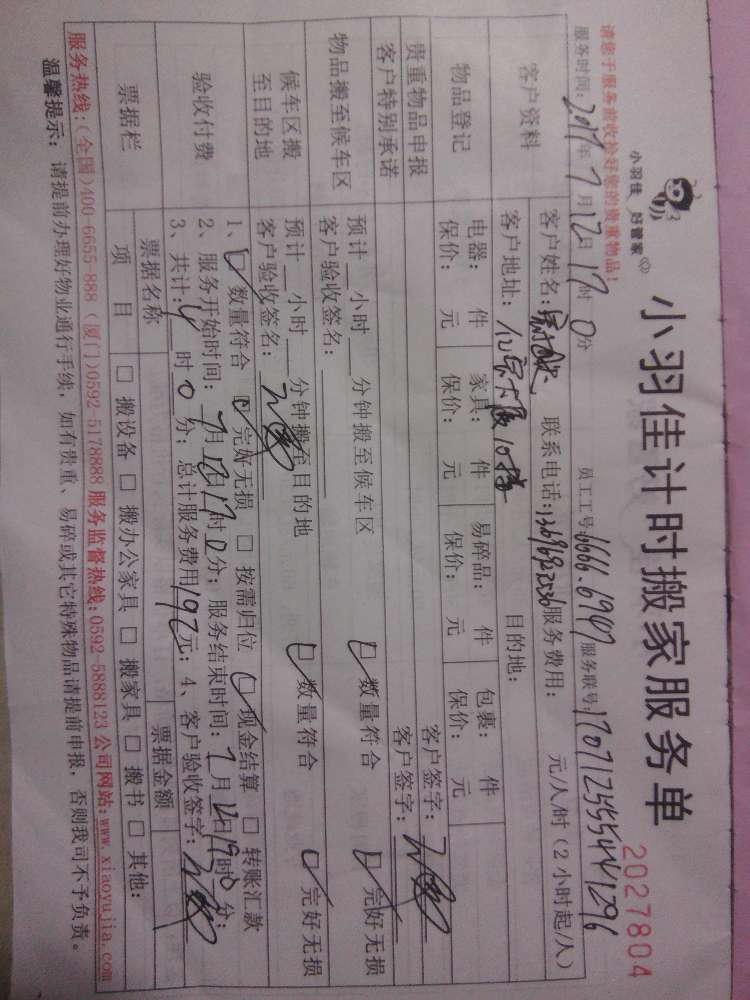 小羽佳 好管家
小羽佳计时搬家服务单
2027804
请您于服务前收拾好您的贵重物品！
服务时间：2017年7月12日17时0分 员工工号：6666.6947 服务联号：
客户资料
客户姓名： 联系电话： 服务费用： 元/人/时（2小时起/人）
客户地址： 目的地：
物品登记
电器： 件 家具： 件 易碎品： 件 包裹： 件
保价： 元 保价： 元 保价： 元 保价： 元
贵重物品申报 客户签字：
客户特别承诺 客户签字：
物品搬至候车区
预计 小时 分钟搬至候车区 数量符合 完好无损
客户验收签名：
候车区搬至目的地
预计 小时 分钟搬至目的地 数量符合 完好无损
客户验收签名：
验收付费
1、 数量符合 完好无损 按需归位 现金结算 转账汇款
2、服务开始时间：7月12日17时0分；服务结束时间：7月12日19时0分；
3、共计：4时0分；总计服务费用192元；4、客户验收签字：
票据栏
票据名称 票据金额
项目 搬设备 搬办公家具 搬家具 搬书 其他：
服务热线：（全国）400-6655 888（厦门）0592-5178888 服务监督热线：0592-5888123 公司网站：www.xiaoyujia.com
温馨提示：请提前办理好物业通行手续，如有贵重、易碎或其它特殊物品请提前申报，否则我司不予负责。